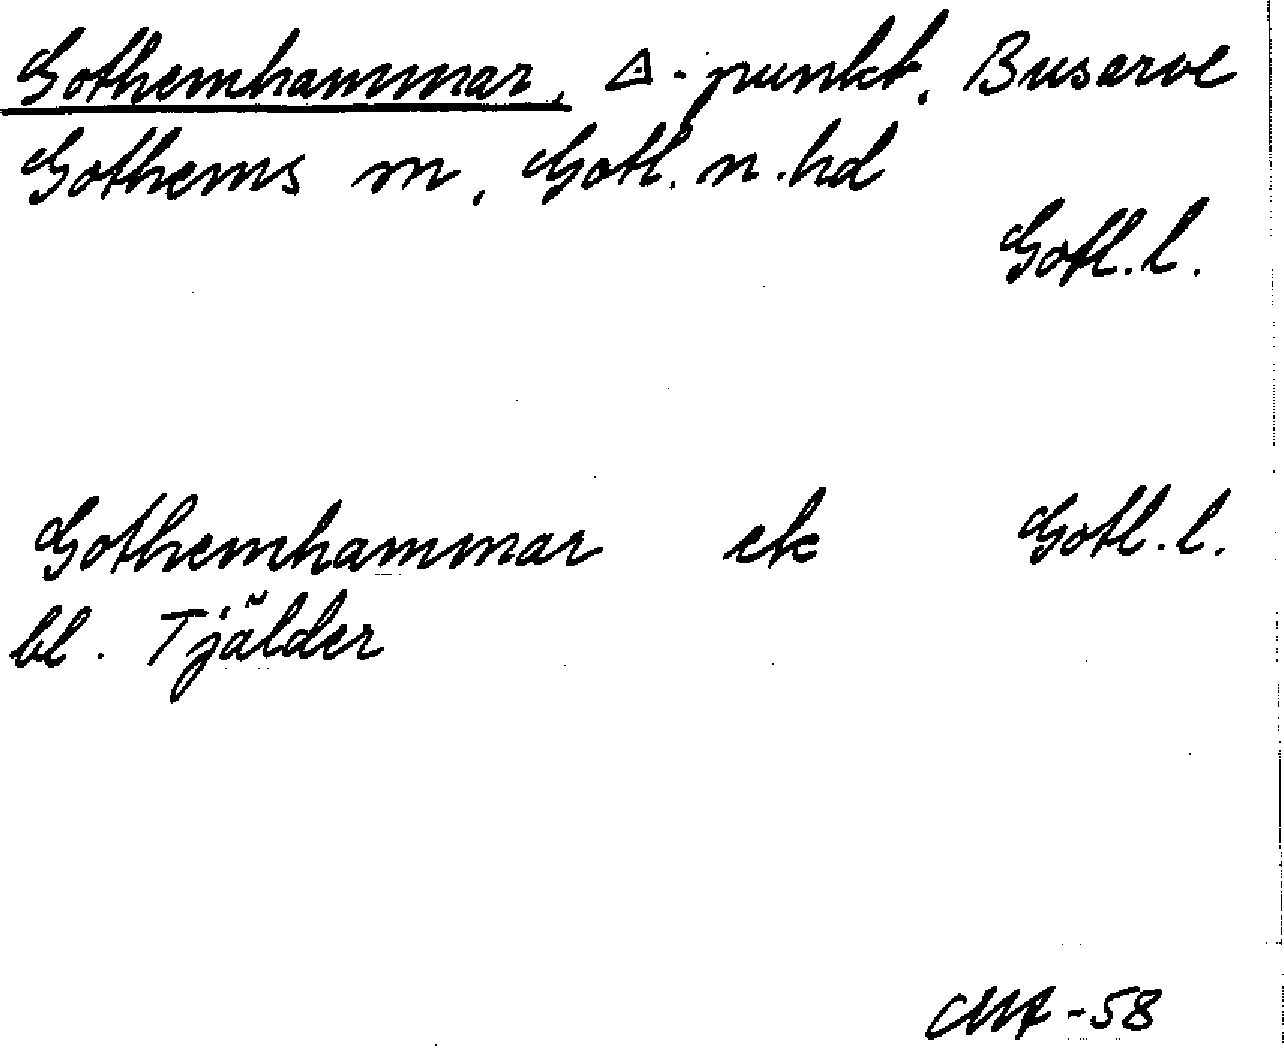 Gothemhammar, △-punkt, Buserve
Gothems sn, Gotl. n. hd
Gotl. l.
Gothemhammar ek Gotl. l.
bl. Tjälder
-58